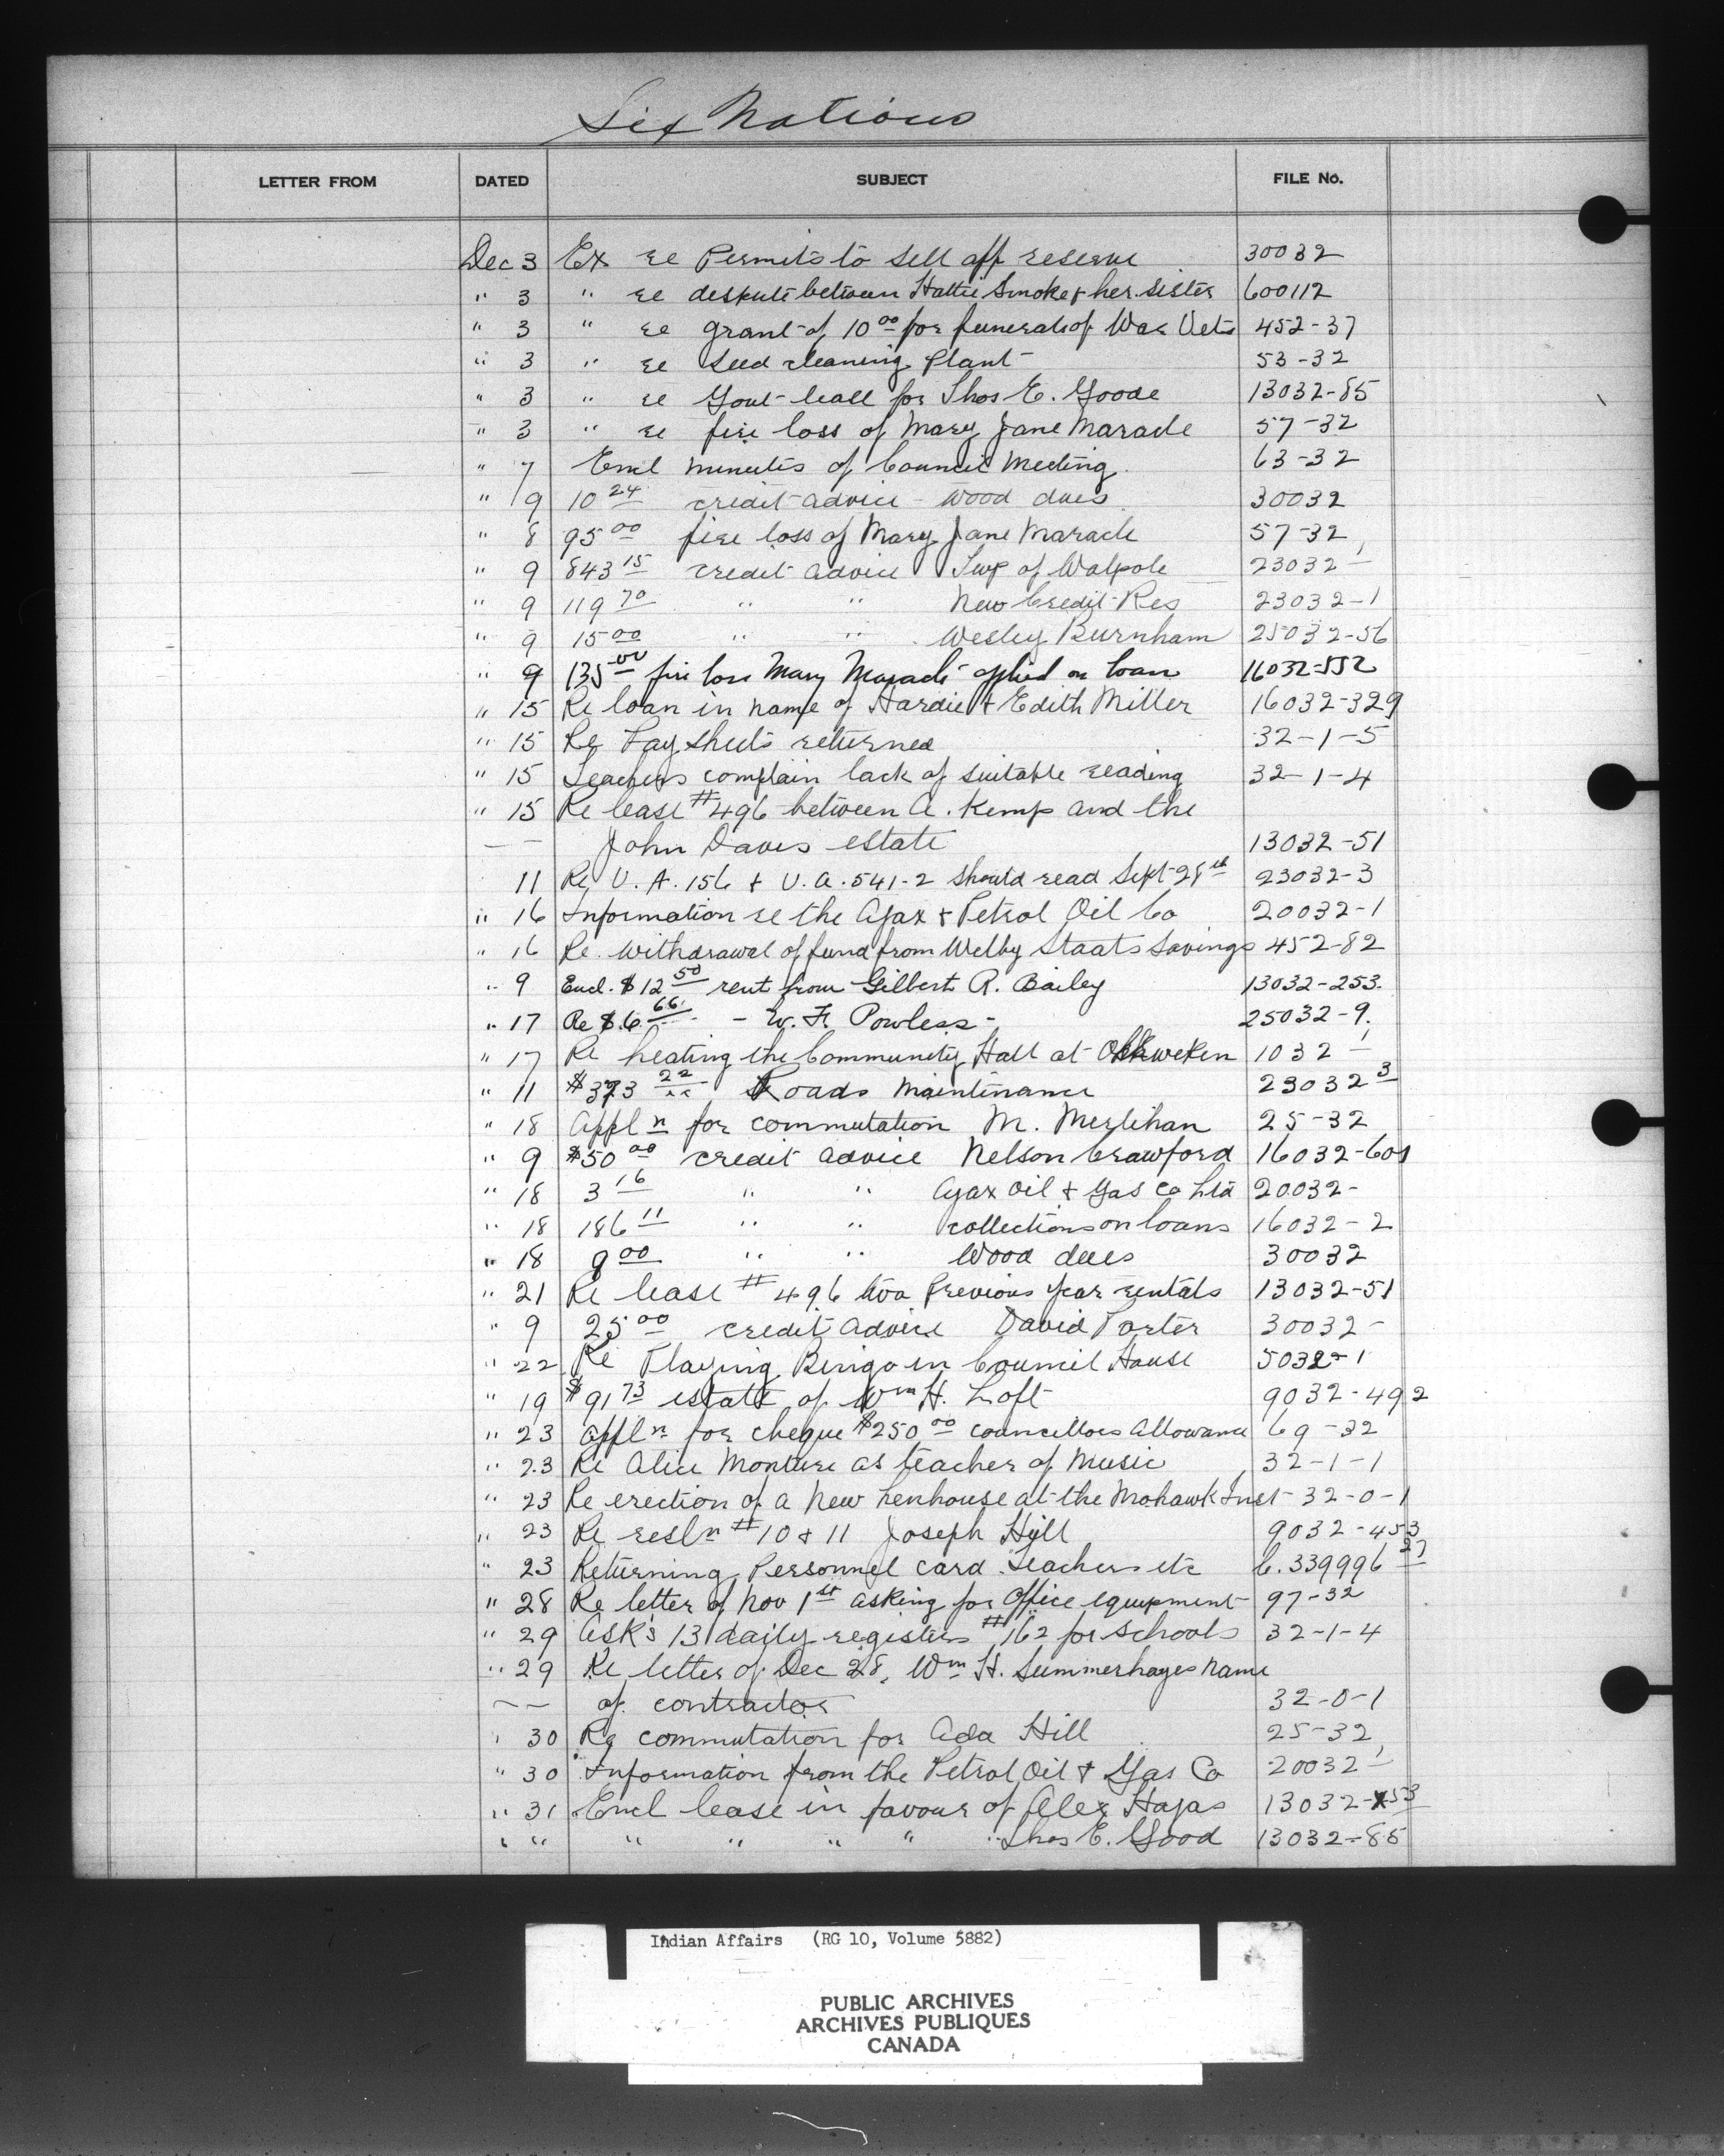 Six Nations
LETTER FROM DATED SUBJECT FILE No.
Dec 3 Ex re Permits to sell off reserve 30032
" 3 " re despute between Hattie Smoke & her sister 600112
" 3 " re grant of 10 00 for funerals of War Vets 452-37
" 3 " re seed cleaning plant 53-32
" 3 " re Gout lease for Thos E. Goode 13032-85
" 3 " re fire loss of Mary Jane Maracle 57-32
" 7 Encl minutes of Council Meeting 63-32
" 9 10 24 credit advice - wood dues 30032
" 8 95 00 fire loss of Mary Jane Maracle 57-32
" 9 843 15 credit advice Twp of Walpole 23032-1
" 9 119 70 " " New Credit Res 23032-1
" 9 15 00 " " Wesley Burnham 25032-56
" 9 135 00 fire loss Mary Maracle applied on loan 16032-552
" 15 Re loan in name of Hardie & Edith Miller 16032-329
" 15 Re Pay sheets returned 32-1-5
" 15 Teachers complain lack of suitable reading 32-1-4
" 15 Re lease #496 between A. Kemp and the
— — John Daves estate 13032-51
11 Re U.A. 156 & U.A. 541-2 should read Sept 28th 23032-3
" 16 Information re the Ajax & Petrol Oil Co 20032-1
" 16 Re. withdrawal of fund from Welby Staats Savings 452-82
" 9 Encl. $12 50 rent from Gilbert R. Bailey 13032-253.
" 17 Re $.6 66 - W. F. Powless - 25032-9.
" 17 Re heating the Community Hall at Ohsweken 1032-1
" 11 $373 22 Roads maintinance 23032 3
" 18 Appl n for commutation M. Merlihan 25-32
" 9 $50 00 credit advice Nelson Crawford 16032-601
" 18 3 16 " " Ajax Oil & Gas Co Ltd 20032-
" 18 186 11 " " collections on loans 16032-2
" 18 9 00 " " Wood dues 30032
" 21 Re lease # 496 two previous year rentals 13032-51
" 9 25 00 credit advice David Porter 30032-
" 22 Re Playing Bingo in Council House 5032-1
" 19 $91 73 estate of Wm H. Loft 9032-492
" 23 Appl n for cheque $250 00 councillors Allowance 69-32
" 23 Re Alice Monture as teacher of Music 32-1-1
" 23 Re erection of a new henhouse at the Mohawk Inst 32-0-1
" 23 Re resl n #10 & 11 Joseph Hill 9032-453
" 23 Returning Personnel card Teachers etc C.339996 27
" 28 Re letter of Nov 1st asking for Office equipment 97-32
" 29 Asks 13 daily registers #162 for schools 32-1-4
" 29 Re letter of Dec 28, Wm H. Summerhayes name
— — of contractor 32-0-1
" 30 Re commutation for Ada Hill 25-32
" 30 Information from the Petrol Oil & Gas Co 20032-1
" 31 Encl lease in favour of Alex Hajas 13032-53
" " " " " " " Thos E. Good 13032-85
Indian Affairs (RG 10, Volume 5882)
PUBLIC ARCHIVES
ARCHIVES PUBLIQUES
CANADA